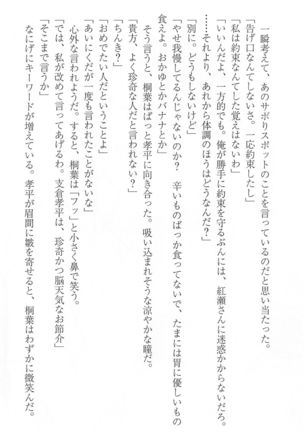 一瞬考えて、あのサボりスポットのことを言っているのだと思い当たった。
「告げ口なんてしないさ、一応約束したし」
「私は約束なんてした覚えはないわ」
「いいんだよ、一方的でも。俺が勝手に約束を守るぶんには、紅瀬さんに迷惑かからないだろ。
……それより、あれから体調のほうはどうなんだ？」
「別に。どうもしないけど」
「やせ我慢してるんじゃないのか？　辛いものばっか食ってないで、たまには胃に優しいもの
食えよ。おかゆとかバナナとか」
そう言うと、桐葉はぱっと孝平に向き合った。吸い込まれそうな涼やかな瞳だ。
「貴方、よく珍奇な人だと言われない？」
「ちんき？」
「おめでたい人だということよ」
「あいにくだが一度も言われたことがないな」
心外な言われようだ。すると、桐葉は「フッ」と小さく鼻で笑う。
「では、私が改めて言ってあげるわ。支倉孝平は、珍奇かつ脳天気なお節介」
「そこまで言うか」
なにげにキーワードが増えている。孝平が眉間に皺を寄せると、桐葉はわずかに微笑んだ。